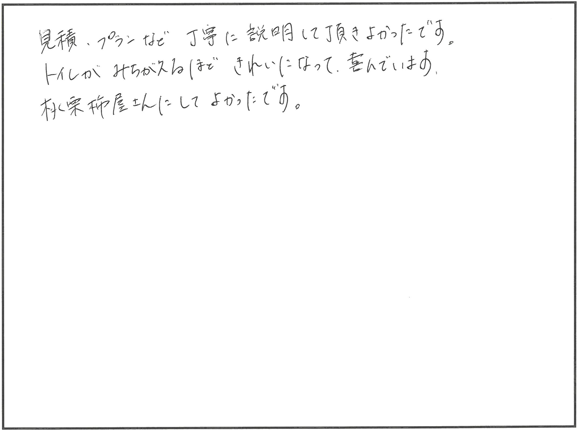 見積、プランなど 丁寧に説明して頂きよかったです。
トイレが みちがえるほど きれいになって、喜んでいます、
桃栗柿屋さんにして よかったです。